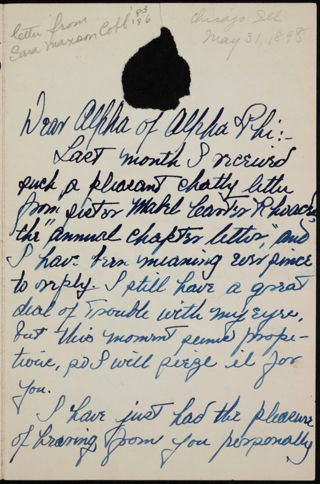 letter from
Sara Maxson Cobb p3
'86
Chicago Ill
May 31, 1898
Dear Alpha of Alpha Phi:-
Last month I received
such a pleasant chatty letter
from sister Mabel Carter Rhoads
the "annual chapter letter", and
I have been meaning ever since
to reply. I still have a great
deal of trouble with my eyes,
but this moment seems prope-
tious, so I will seize it for
you.
I have just had the pleasure
of hearing from you personally